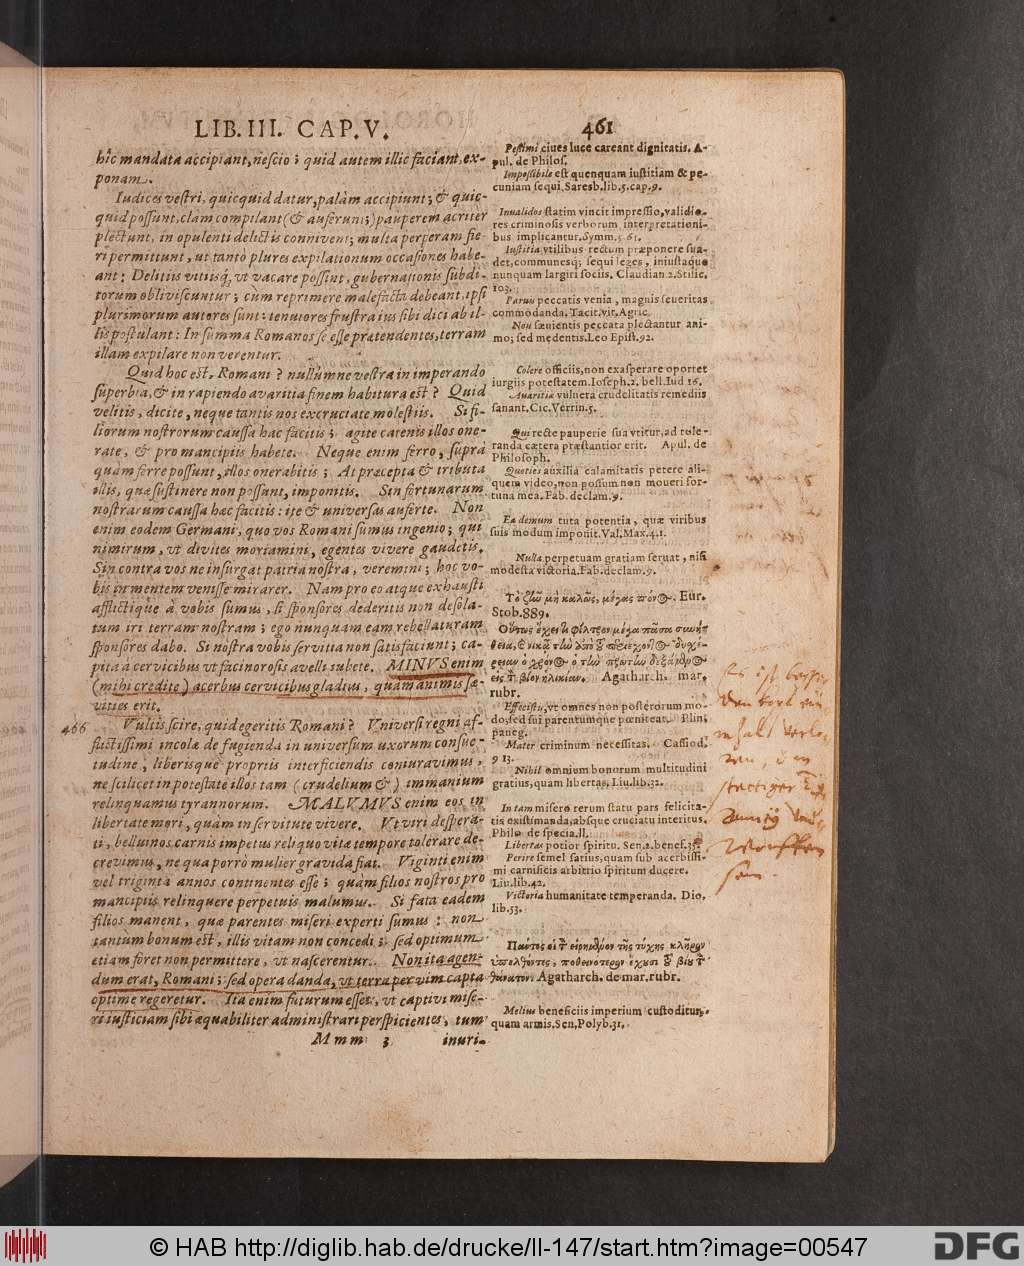 LIB. III. CAP. V. 461
hîc mandata accipiant, nescio; quid autem illic faciant, ex-
ponam.
Iudices vestri, quicquid datur, palàm accipiunt; & quic-
quid possunt, clam compilant (& auferunt;) pauperem acriter
plectunt, in opulenti delictis connivent; multa perperam fie-
ri permittunt, ut tanto plures expilationum occasiones habe-
ant: Delitiis vitiisq́, ut vacare possint, gubernationis subdi-
torum obliviscuntur; cum reprimere malefacta debeant, ipsi
plurimorum autores sunt: tenuiores frustra ius sibi dici ab il-
lis postulant: In summa Romanos se esse prætendentes, terram
illam expilare non verentur.
Quid hoc est, Romani? nullúmne vestra in imperando
superbia, & in rapiendo avaritia finem habitura est? Quid
velitis, dicite, neque tantis nos excruciate molestiis. Si fi-
liorum nostrorum caussa hæc facitis; agite catenis illos one-
rate, & pro mancipiis habete. Neque enim ferro, suprà
quàm ferre possunt, illos onerabitis; At præcepta & tributa
illis, quæ sustinere non possunt, imponitis. Sin fortunarum
nostrarum caussa hæc facitis: ite & universas auferte. Non
enim eodem Germani, quo vos Romani sumus ingenio; qui
nimirum, vt divites moriamini, egentes vivere gaudetis.
Sin contra vos ne insurgat patria nostra, veremini; hoc vo-
bis in mentem venisse mirarer. Nam pro eo atque exhausti
afflictique à vobis sumus, si sponsores dederitis non desola-
tum iri terram nostram; ego nunquam eam rebellaturam
sponsores dabo. Si nostra vobis servitia non satisfaciunt; ca-
pita à cervicibus vt facinorosis avelli iubete. MINVS enim
(mihi credite) acerbus cervicibus gladius, quàm animis sæ-
vities erit.
466 Vultis scire, quid egeritis Romani? Vniversi regni af-
flictissimi incolæ de fugienda in universum uxorum consue-
tudine, liberisque propriis interficiendis coniuravimus,
ne scilicet in potestate illos tam (crudelium &) immanium
relinquamus tyrannorum. MALVMVS enim eos in
libertate mori, quàm in servitute vivere. Vt viri despera-
ti, belluinos carnis impetus reliquo vitæ tempore tolerare de-
crevimus, ne qua porrò mulier gravida fiat. Viginti enim
vel triginta annos continentes esse; quàm filios nostros pro
mancipiis relinquere perpetuis malumus. Si fata eadem
filios manent, quæ parentes miseri experti sumus: non
tantùm bonum est, illis vitam non concedi; sed optimum
etiam foret non permittere, vt nascerentur. Non ita agen-
dum erat, Romani; sed opera danda, vt terra per vim capta
optime regeretur. Ita enim futurum esset, vt captivi mise-
ri iusticiam sibi æquabiliter administrari perspicientes, tum
Mmm 3 inuri-
Pessimi ciues luce careant dignitatis. A-
pul. de Philos.
Impossibile est quenquam iustitiam & pe-
cuniam sequi. Saresb. lib. 5. cap. 9.
Inualidos statim vincit impressio, validio-
res criminosis verborum interpretationi-
bus implicantur. Symm. 5. 61.
Iustitia vtilibus rectum præponere sua-
det, communesq; sequi leges, iniustaque
nunquam largiri sociis. Claudian. 2. Stilic.
103.
Paruis peccatis venia, magnis seueritas
commodanda. Tacit. vit. Agric.
Non sæuientis peccata plectantur ani-
mo; sed medentis. Leo Epist. 92.
Colere officiis, non exasperare oportet
iurgiis potestatem. Ioseph. 2. bell. Iud 16.
Auaritiæ vulnera crudelitatis remediis
sanant. Cic. Verrin. 5.
Qui recte pauperie sua vtitur, ad tole-
randa cætera præstantior erit. Apul. de
Philosoph.
Quoties auxilia calamitatis petere ali-
quem video, non possum non moueri for-
tuna mea. Fab. declam. 9.
Ea demum tuta potentia, quæ viribus
suis modum imponit. Val. Max. 4. 1.
Nulla perpetuam gratiam seruat, nisi
modesta victoria. Fab. declam. 9.
Τὸ ζῶν μὴ καλῶς, μέγας πόνος. Eur.
Stob. 889.
Agatharch. mar.
rubr.
Effecistis, vt omnes non posterorum mo-
do, sed sui parentumque pœniteat. Plin.
paneg.
Mater criminum necessitas. Cassiod.
9 13.
Nihil omnium bonorum multitudini
gratius, quam libertas. Liu. lib. 32.
In tam misero rerum statu pars felicita-
tis existimanda, absque cruciatu interitus.
Philo de specia. ll.
Libertas potior spiritu. Sen. 2. benef. 35.
Perire semel satius, quam sub acerbissi-
mi carnificis arbitrio spiritum ducere.
Liu. lib. 42.
Victoria humanitate temperanda. Dio.
lib. 53.
Agatharch. de mar. rubr.
Melius beneficiis imperium custoditur,
quam armis. Sen. Polyb. 31.
Es ist besser
© HAB http://diglib.hab.de/drucke/ll-147/start.htm?image=00547
DFG